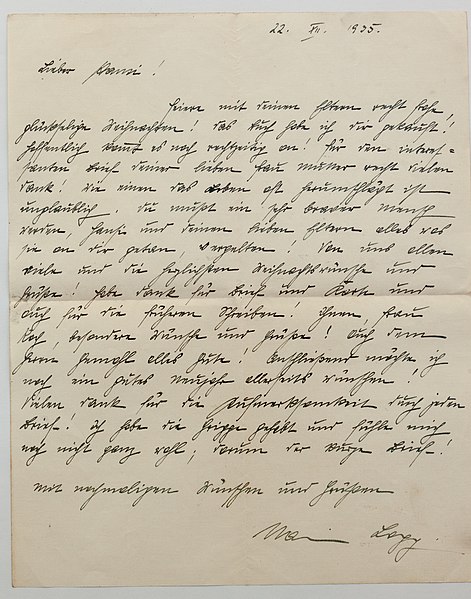 22. XII. 1935.
Lieber Hansi!
Feiere mit deinen Eltern recht frohe,
glückselige Weihnachten! Das Buch habe ich dir gekauft!
Hoffentlich kommt es noch rechtzeitig an! Für den interes-
santen Brief deiner lieben Frau Mutter recht vielen
Dank! Wie einen das Leben oft herumschlägt ist
unglaublich. Du mußt ein sehr braver Mensch
werden, Hansi und deinen lieben Eltern alles was
sie an dir getan vergelten. Von uns allen
viele und die herzlichsten Weihnachtswünsche und
Grüße! Habe Dank für Brief und Karte und
auch für die früheren Schreiben! Ihnen, Frau
Koch, besondere Wünsche und Grüße! Auch dem
Herrn Gemahl alles Gute! Anschließend möchte ich
noch ein gutes Neujahr allerseits wünschen!
Vielen Dank für die Aufmerksamkeit durch jeden
Brief! Ich habe die Grippe gehabt und fühle mich
noch nicht ganz wohl, darum der kurze Brief!
Mit nochmaligen Wünschen und Grüßen